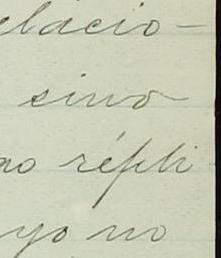 elacio-
sino
no répli
yo no